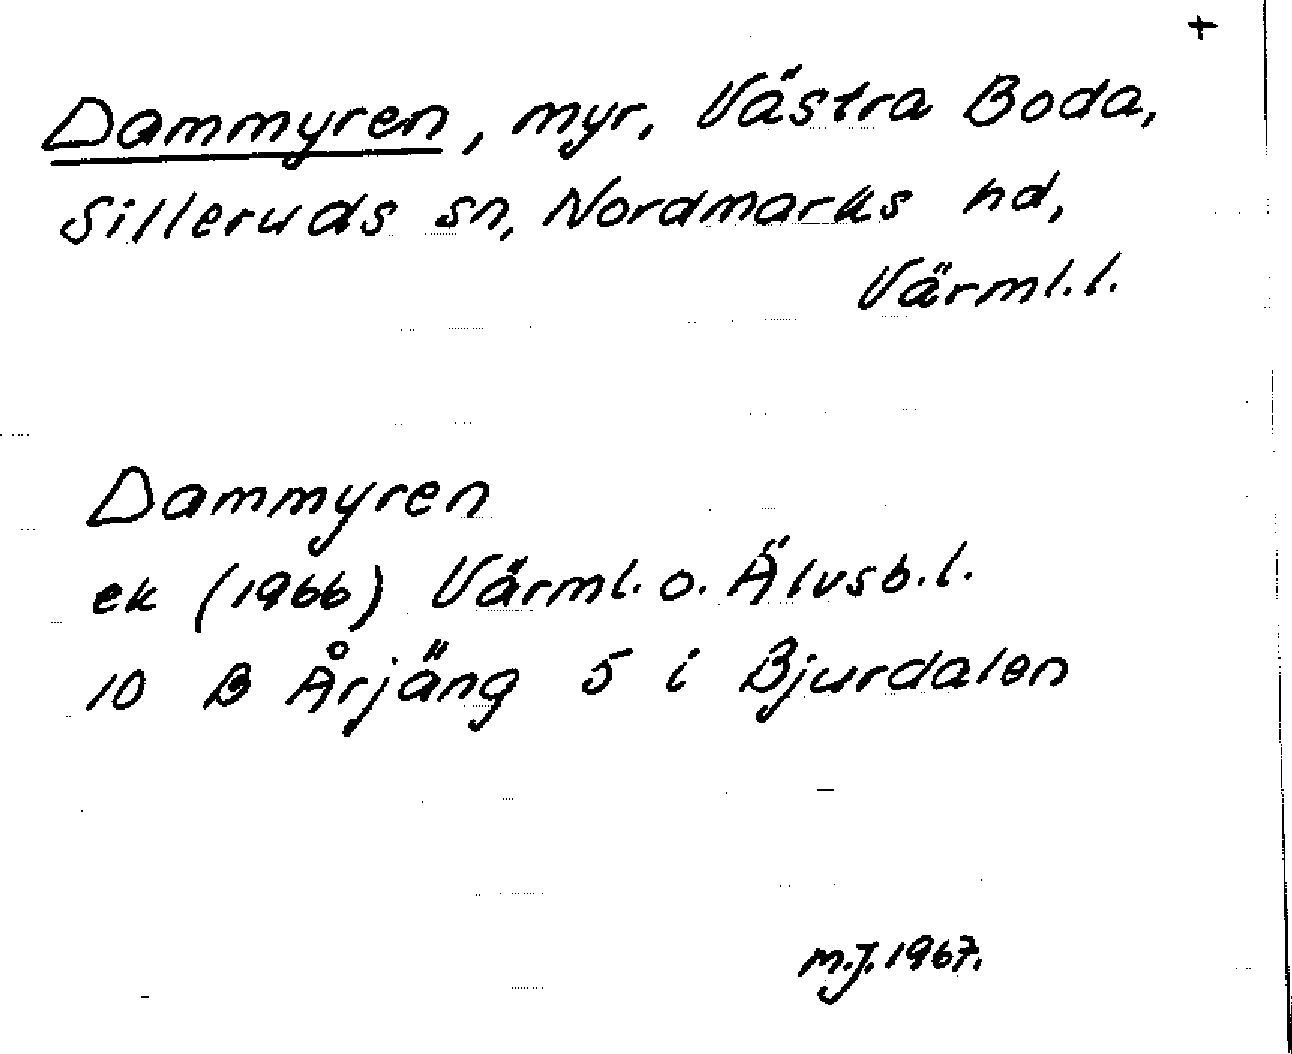 +
Dammyren, myr, Västra Boda,
Silleruds sn, Nordmarks hd,
Värml.l.
Dammyren
ek (1966) Värml. o. Älvsb.l.
10 B Årjäng 5 i Bjurdalen
M.J. 1967.